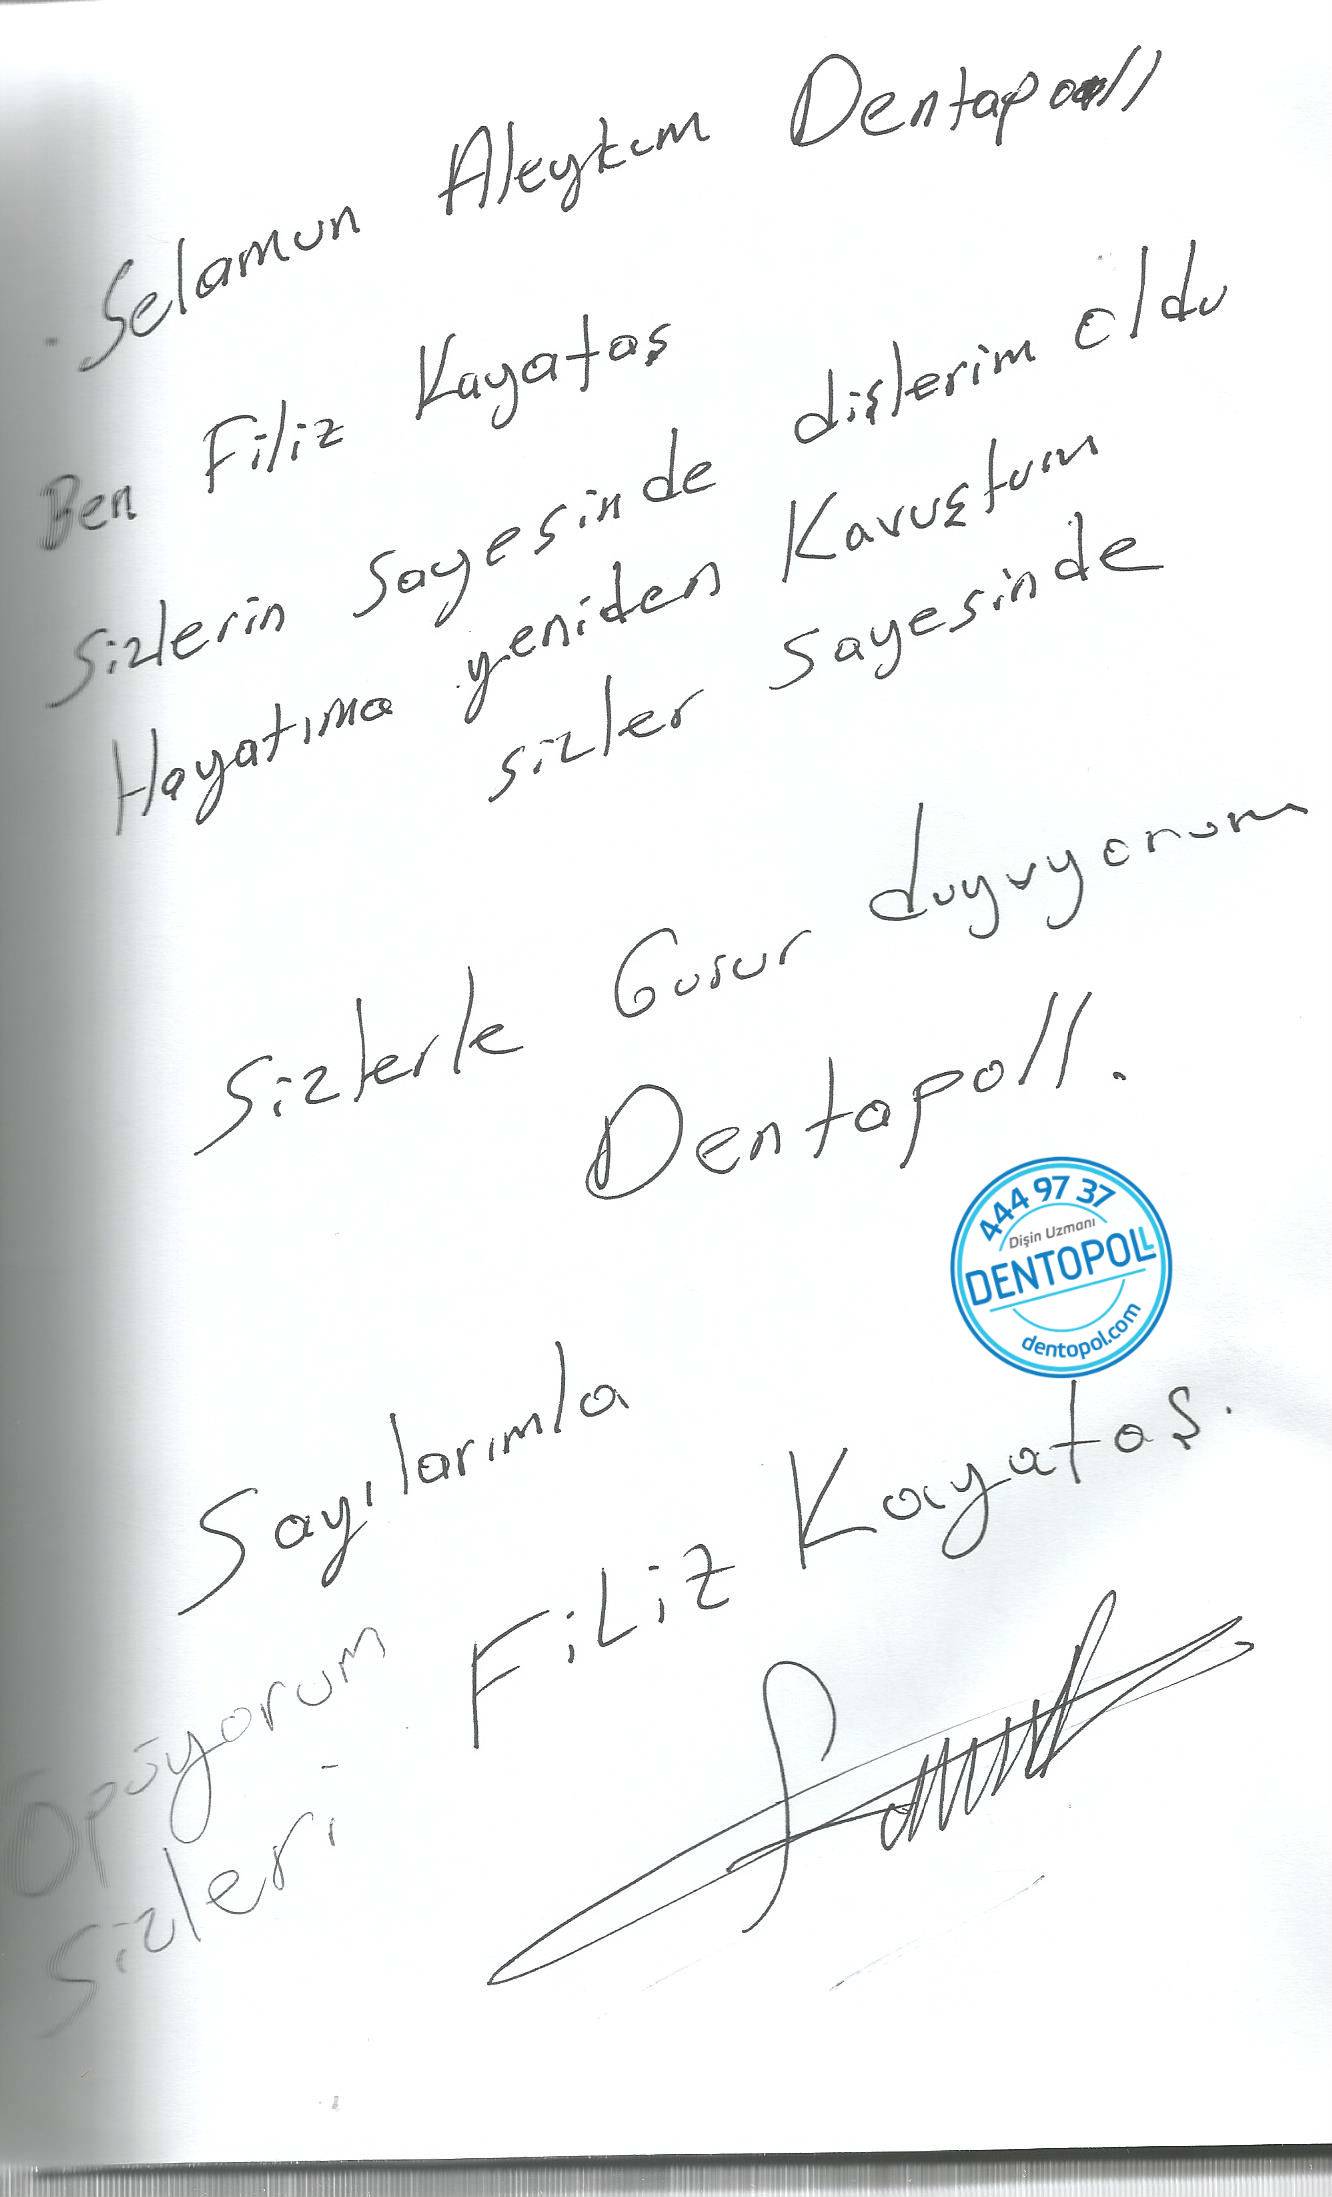 Selamun Aleykum Dentapoll
Ben Filiz Kayataş
Sizlerin Sayesinde dişlerim oldu
Hayatıma yeniden Kavuştum
sizler sayesinde
Sizlerle Gurur duyuyorum
Dentapoll.
444 97 37
Dişin Uzmanı
DENTOPOLL
dentopol.com
Sayılarımla
FiLiz Kayataş.
Öpüyorum
Sizleri